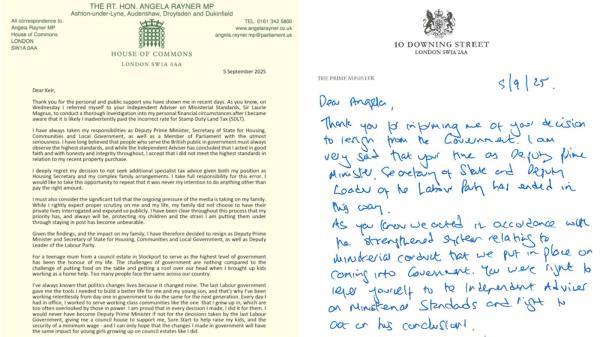 THE RT. HON. ANGELA RAYNER MP
Ashton-under-Lyne, Audenshaw, Droylsden and Dukinfield
All correspondence to:
Angela Rayner MP
House of Commons
LONDON
SW1A 0AA
TEL. 0161 342 5800
www.angelarayner.co.uk
angela.rayner.mp@parliament.uk
HOUSE OF COMMONS
LONDON SW1A 0AA
5 September 2025
Dear Keir,
Thank you for the personal and public support you have shown me in recent days. As you know, on
Wednesday I referred myself to your Independent Adviser on Ministerial Standards, Sir Laurie
Magnus, to conduct a thorough investigation into my personal financial circumstances after I became
aware that it is likely I inadvertently paid the incorrect rate for Stamp Duty Land Tax (SDLT).
I have always taken my responsibilities as Deputy Prime Minister, Secretary of State for Housing,
Communities and Local Government, as well as a Member of Parliament with the utmost
seriousness. I have long believed that people who serve the British public in government must always
observe the highest standards, and while the Independent Adviser has concluded that I acted in good
faith and with honesty and integrity throughout, I accept that I did not meet the highest standards in
relation to my recent property purchase.
I deeply regret my decision to not seek additional specialist tax advice given both my position as
Housing Secretary and my complex family arrangements. I take full responsibility for this error. I
would like to take this opportunity to repeat that it was never my intention to do anything other than
pay the right amount.
I must also consider the significant toll that the ongoing pressure of the media is taking on my family.
While I rightly expect proper scrutiny on me and my life, my family did not choose to have their
private lives interrogated and exposed so publicly. I have been clear throughout this process that my
priority has, and always will be, protecting my children and the strain I am putting them under
through staying in post has become unbearable.
Given the findings, and the impact on my family, I have therefore decided to resign as Deputy Prime
Minister and Secretary of State for Housing, Communities and Local Government, as well as Deputy
Leader of the Labour Party.
For a teenage mum from a council estate in Stockport to serve as the highest level of government
has been the honour of my life. The challenges of government are nothing compared to the
challenge of putting food on the table and getting a roof over our head when I brought up kids
working as a home help. Too many people face the same across our country.
I've always known that politics changes lives because it changed mine. The last Labour government
gave me the tools I needed to build a better life for me and my young son, and that's why I've been
working relentlessly from day one in government to do the same for the next generation. Every day I
had in office, I worked to serve working class communities like the one that I grew up in, which are
too often overlooked by those in power. I am proud that in every decision I made, I did it for them. I
would never have become Deputy Prime Minister if not for the decisions taken by the last Labour
Government, giving me a council house to support me, Sure Start to help raise my kids, and the
security of a minimum wage - and I can only hope that the changes I made in government will have
the same impact for young girls growing up on council estates like I did.
10 DOWNING STREET
LONDON SW1A 2AA
THE PRIME MINISTER
5/9/25.
Dear Angela,
Thank you for informing me of your decision
to resign from the Government. I am
very sad that your time as Deputy Prime
Minister, Secretary of State and Deputy
Leader of the Labour Party has ended in
this way.
As you know we acted in accordance with
the strengthened system relating to
ministerial conduct that we put in place on
coming into Government. You were right to
refer yourself to the Independent Adviser
on Ministerial Standards and right to
act on his conclusions.